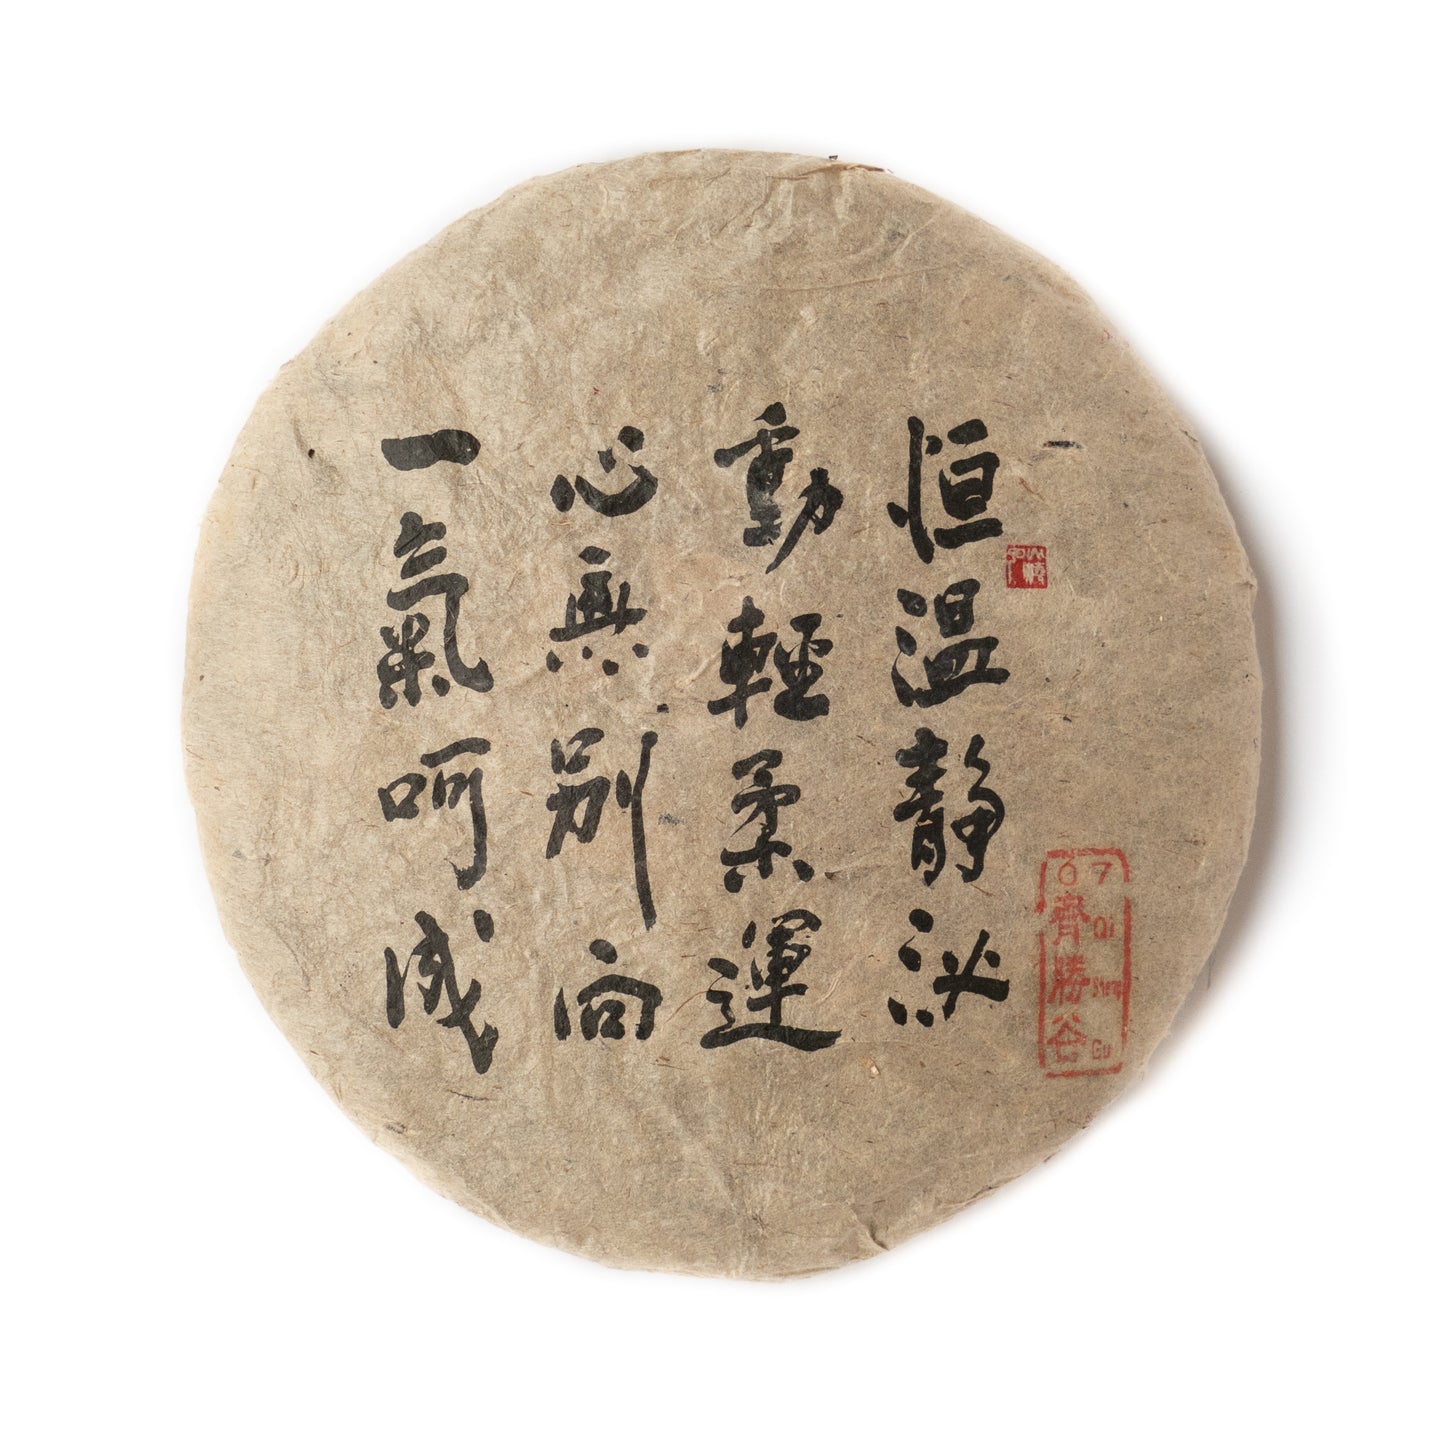 恒温静泌
動輕柔運
心無别向
一氣呵成
07
齊勝谷
Qi
Gu